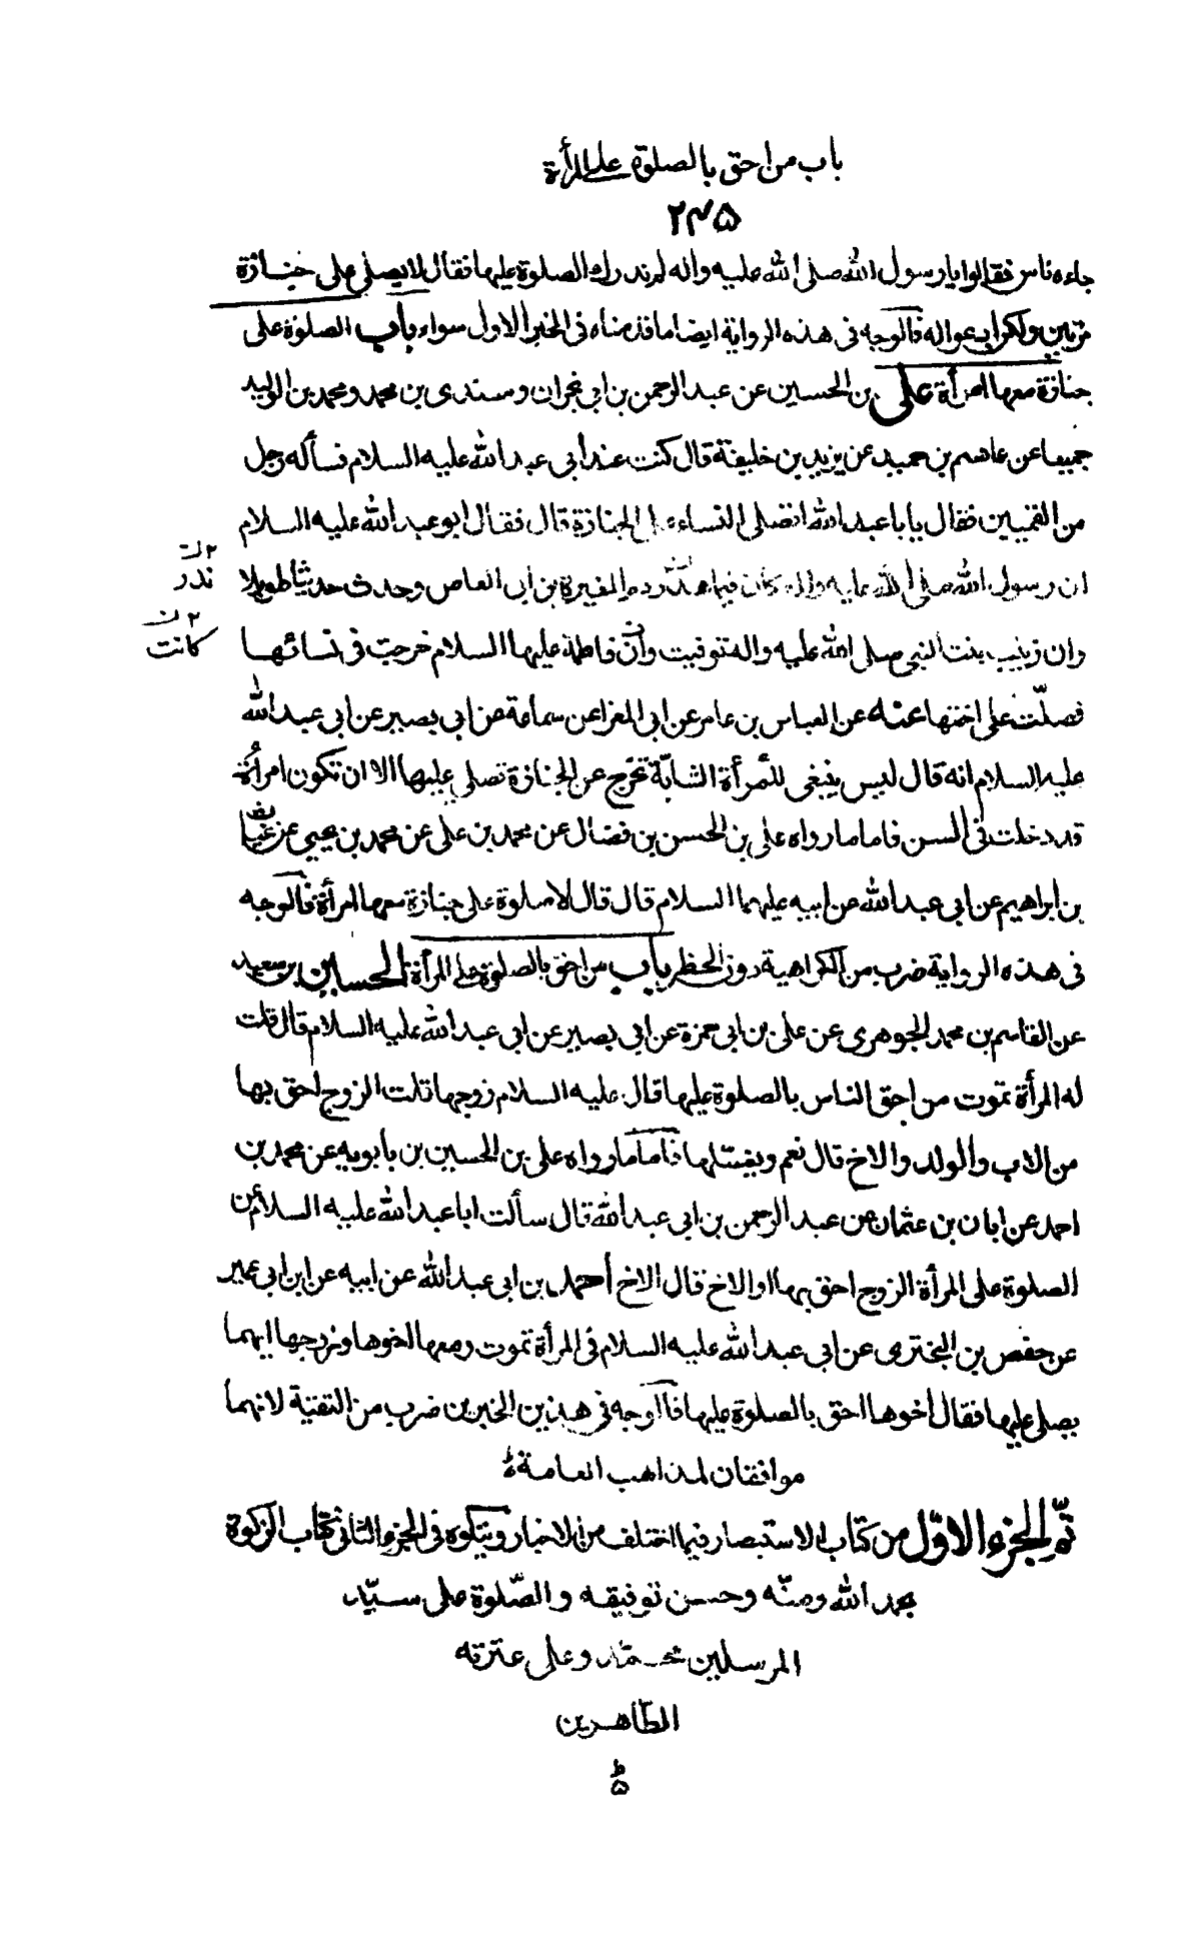 باب من احق بالصلوة على المرأة
٢٤٥
جاءه ناس فقالوا يا رسول الله صلى الله عليه واله لم ندرك الصلوة عليها فقال لا يصلى على جنازة
مرتين ولكن ادعوا له فالوجه فى هذه الرواية ايضا ما قدمناه فى الخبر الاول سواء باب الصلوة على
جنازة معها امرأة على بن الحسين عن عبد الرحمن بن ابى نجران وسندى بن محمد ومحمد بن الوليد
جميعا عن عاصم بن حميد عن يزيد بن خليفة قال كنت عند ابى عبد الله عليه السلام فسأله رجل
من القميين فقال يا با عبد الله اتصلى النساء على الجنازة قال فقال ابو عبد الله عليه السلام
ان رسول الله صلى الله عليه واله كان فيما هدر دم المغيرة بن ابى العاص وحدث حديثا طويلا
٢ ن
ندر
٢ ن
كانت
وان زينب بنت النبى صلى الله عليه واله توفيت وان فاطمة عليها السلام خرجت فى نسائها
فصلّت على اختها عنه عن العباس بن عامر عن ابى المغرا عن سماعة عن ابى بصير عن ابى عبد الله
عليه السلام انه قال ليس ينبغى للمرأة الشابّة تخرج عن الجنازة تصلى عليها الا ان تكون امرأة
قد دخلت فى السن فاما ما رواه على بن الحسن بن فضال عن محمد بن على عن محمد بن يحيى عن غياث
بن ابراهيم عن ابى عبد الله عن ابيه عليهما السلام قال قال لا صلوة على جنازة معها امرأة فالوجه
فى هذه الرواية ضرب من الكراهية دون الحظر باب من احق بالصلوة على المرأة الحسين بن سعيد
عن القاسم بن محمد الجوهرى عن على بن ابى حمزة عن ابى بصير عن ابى عبد الله عليه السلام قال قلت
له المرأة تموت من احق الناس بالصلوة عليها قال عليه السلام زوجها قلت الزوج احق بها
من الاب والولد والاخ قال نعم ويغسلها فاما ما رواه على بن الحسين بن بابويه عن محمد بن
احمد عن ابان بن عثمان عن عبد الرحمن بن ابى عبد الله قال سألت ابا عبد الله عليه السلام عن
الصلوة على المرأة الزوج احق بها او الاخ قال الاخ أحمد بن ابى عبد الله عن ابيه عن ابن ابى عمير
عن حفص بن البخترى عن ابى عبد الله عليه السلام فى المرأة تموت ومعها اخوها وزوجها ايهما
يصلى عليها فقال اخوها احق بالصلوة عليها فالوجه فى هذين الخبرين ضرب من التقيّة لانهما
موافقان لمذاهب العامة
تمّ الجزء الاوّل من كتاب الاستبصار فيما اختلف من الاخبار ويتلوه فى الجزء الثانى كتاب الزكوة
بحمد الله ومنّه وحسن توفيقه والصّلوة على سيّد
المرسلين محمّد وعلى عترته
الطّاهرين